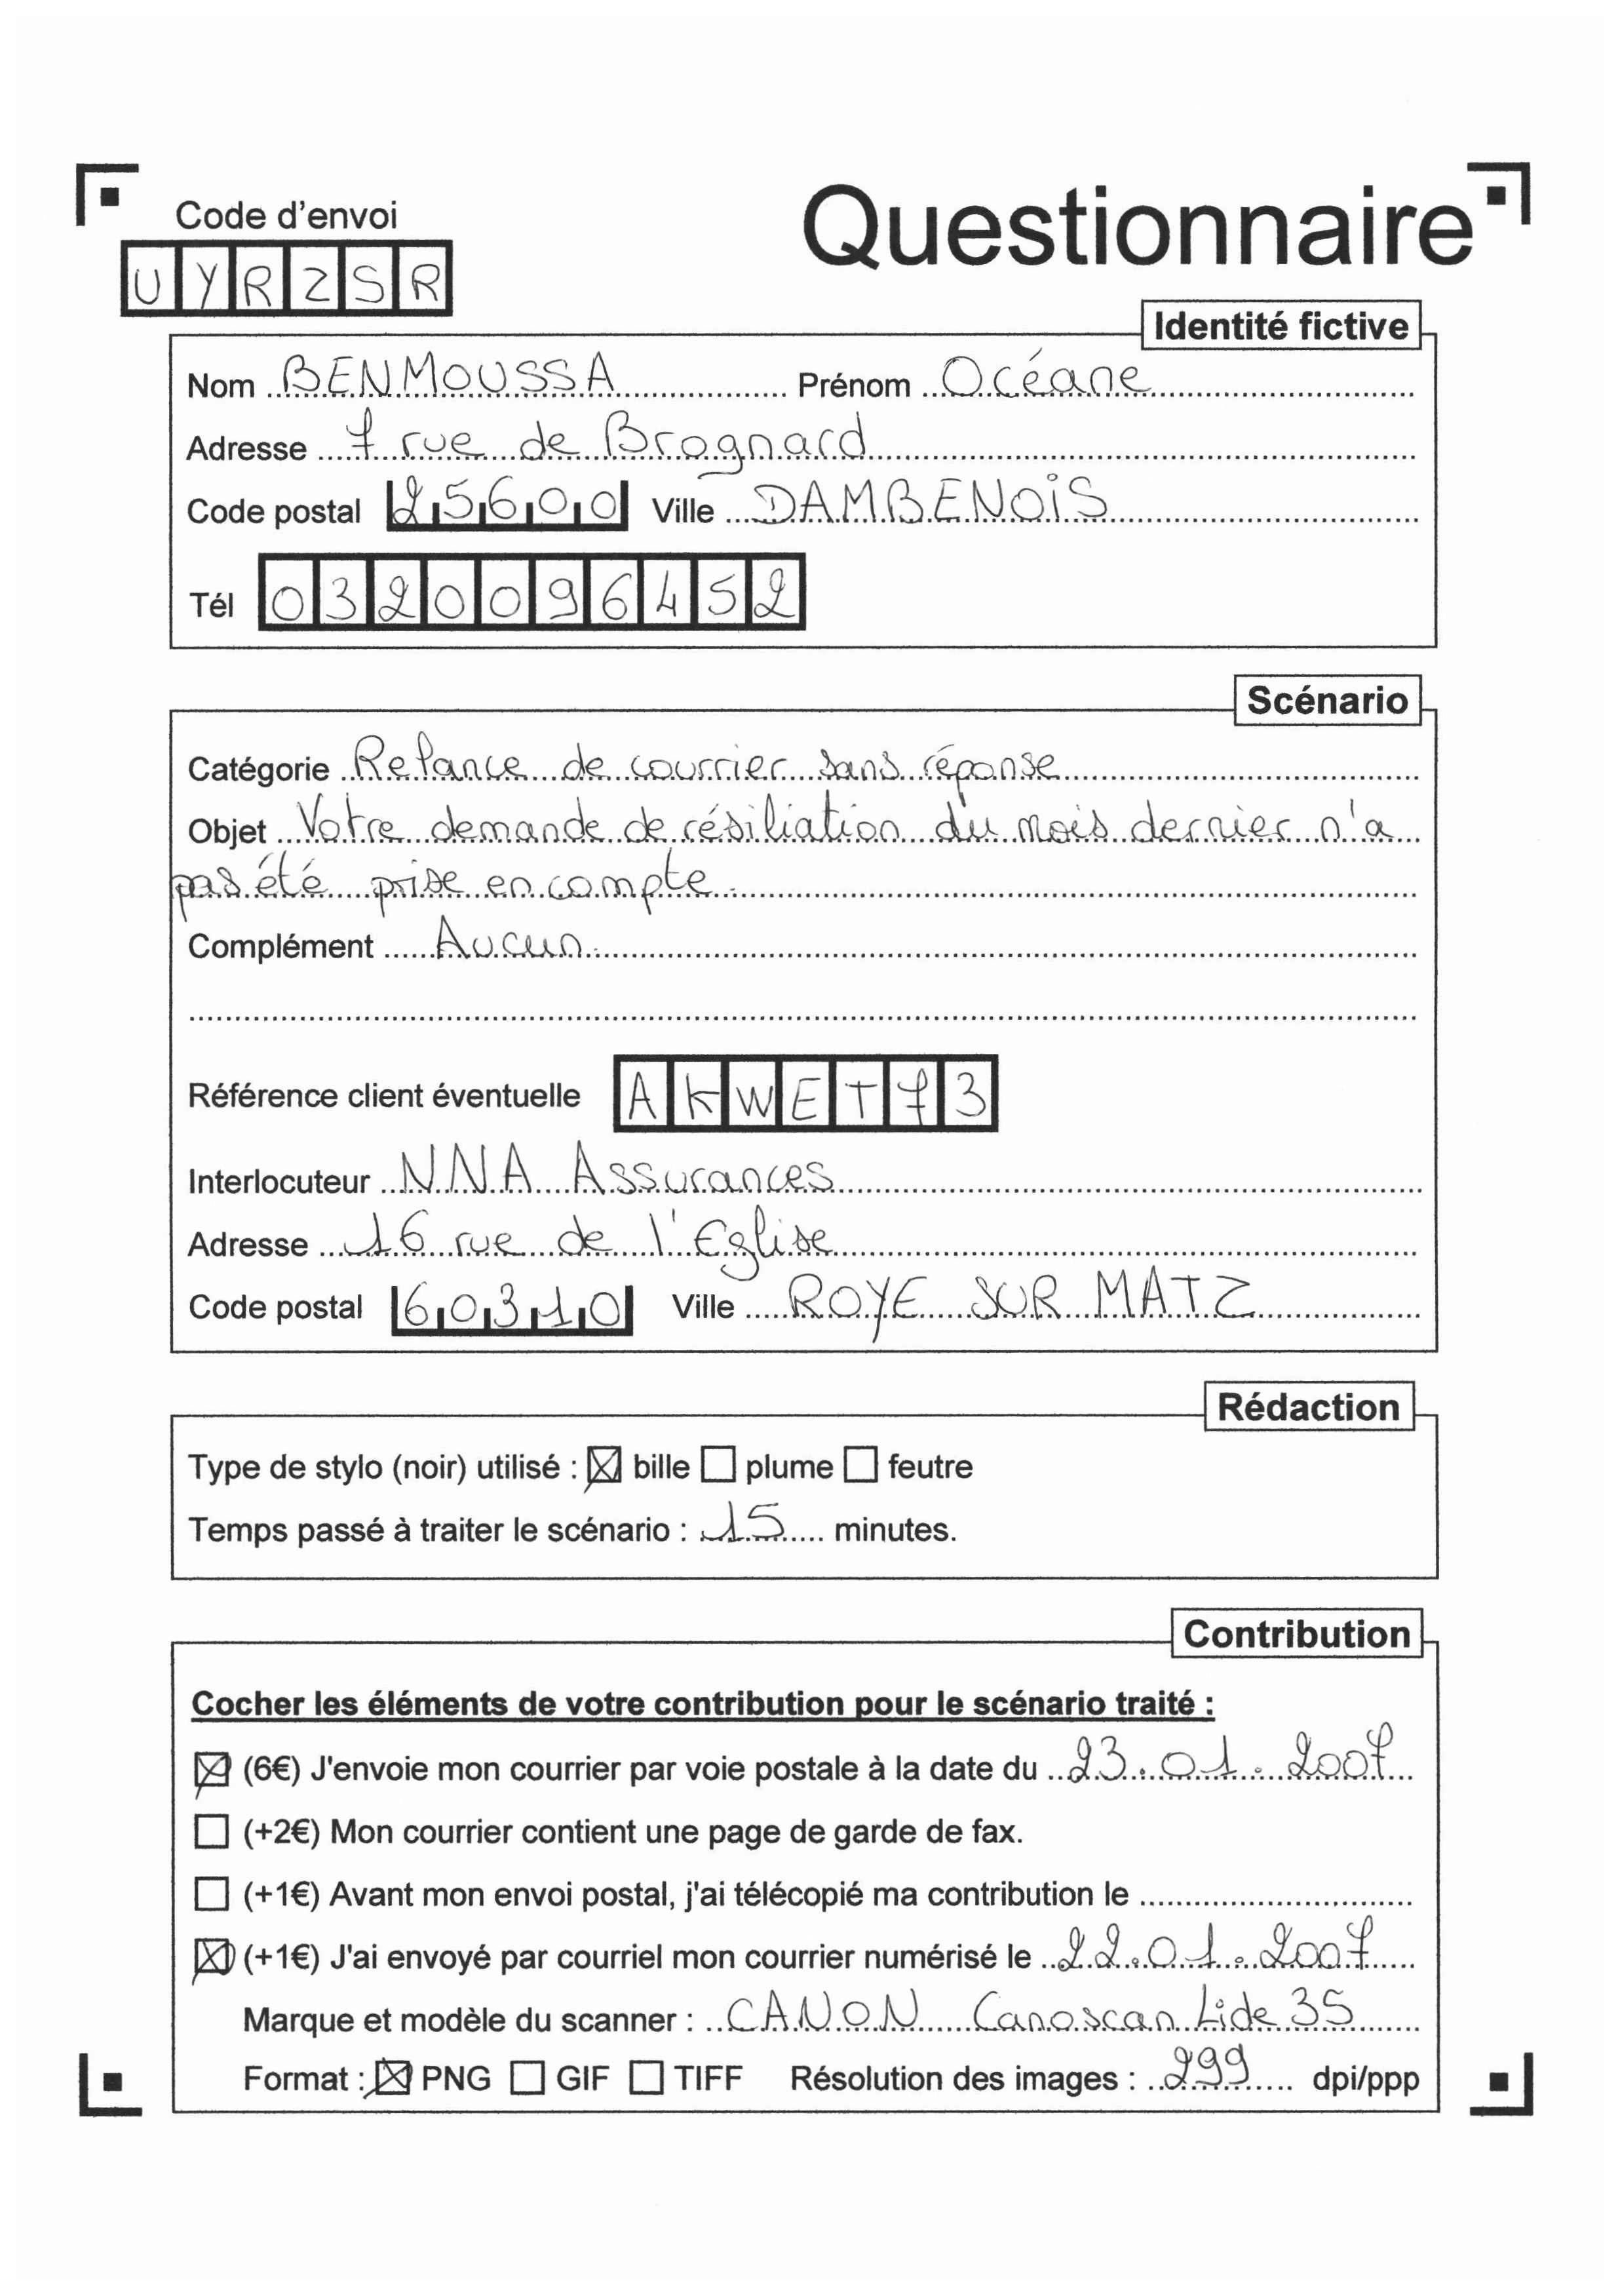 Code d'envoi
Questionnaire
UYRZSR
Identité fictive
Nom BENMOUSSA Prénom Océane
Adresse 7 rue de Brognard
Code postal 25600 Ville DAMBENOIS
Tél 0320096452
Scénario
Catégorie Relance de courrier sans réponse
Objet Votre demande de résiliation du mois dernier n'a
pas été prise en compte.
Complément Aucun.
Référence client éventuelle AKWET73
Interlocuteur NNA Assurances
Adresse 16 rue de l'Eglise
Code postal 60310 Ville ROYE SUR MATZ
Rédaction
Type de stylo (noir) utilisé : ☒ bille ☐ plume ☐ feutre
Temps passé à traiter le scénario : 15 minutes.
Contribution
Cocher les éléments de votre contribution pour le scénario traité :
☒ (6€) J'envoie mon courrier par voie postale à la date du 23.01.2007
☐ (+2€) Mon courrier contient une page de garde de fax.
☐ (+1€) Avant mon envoi postal, j'ai télécopié ma contribution le
☒ (+1€) J'ai envoyé par courriel mon courrier numérisé le 22.01.2007
Marque et modèle du scanner : CANON Canoscan Lide 35
Format : ☒ PNG ☐ GIF ☐ TIFF Résolution des images : 299 dpi/ppp